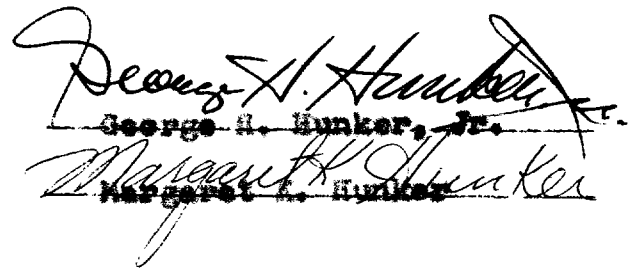 George H. Hunker Jr.
George H. Hunker, Jr.
Margaret K Hunker
Margaret K. Hunker